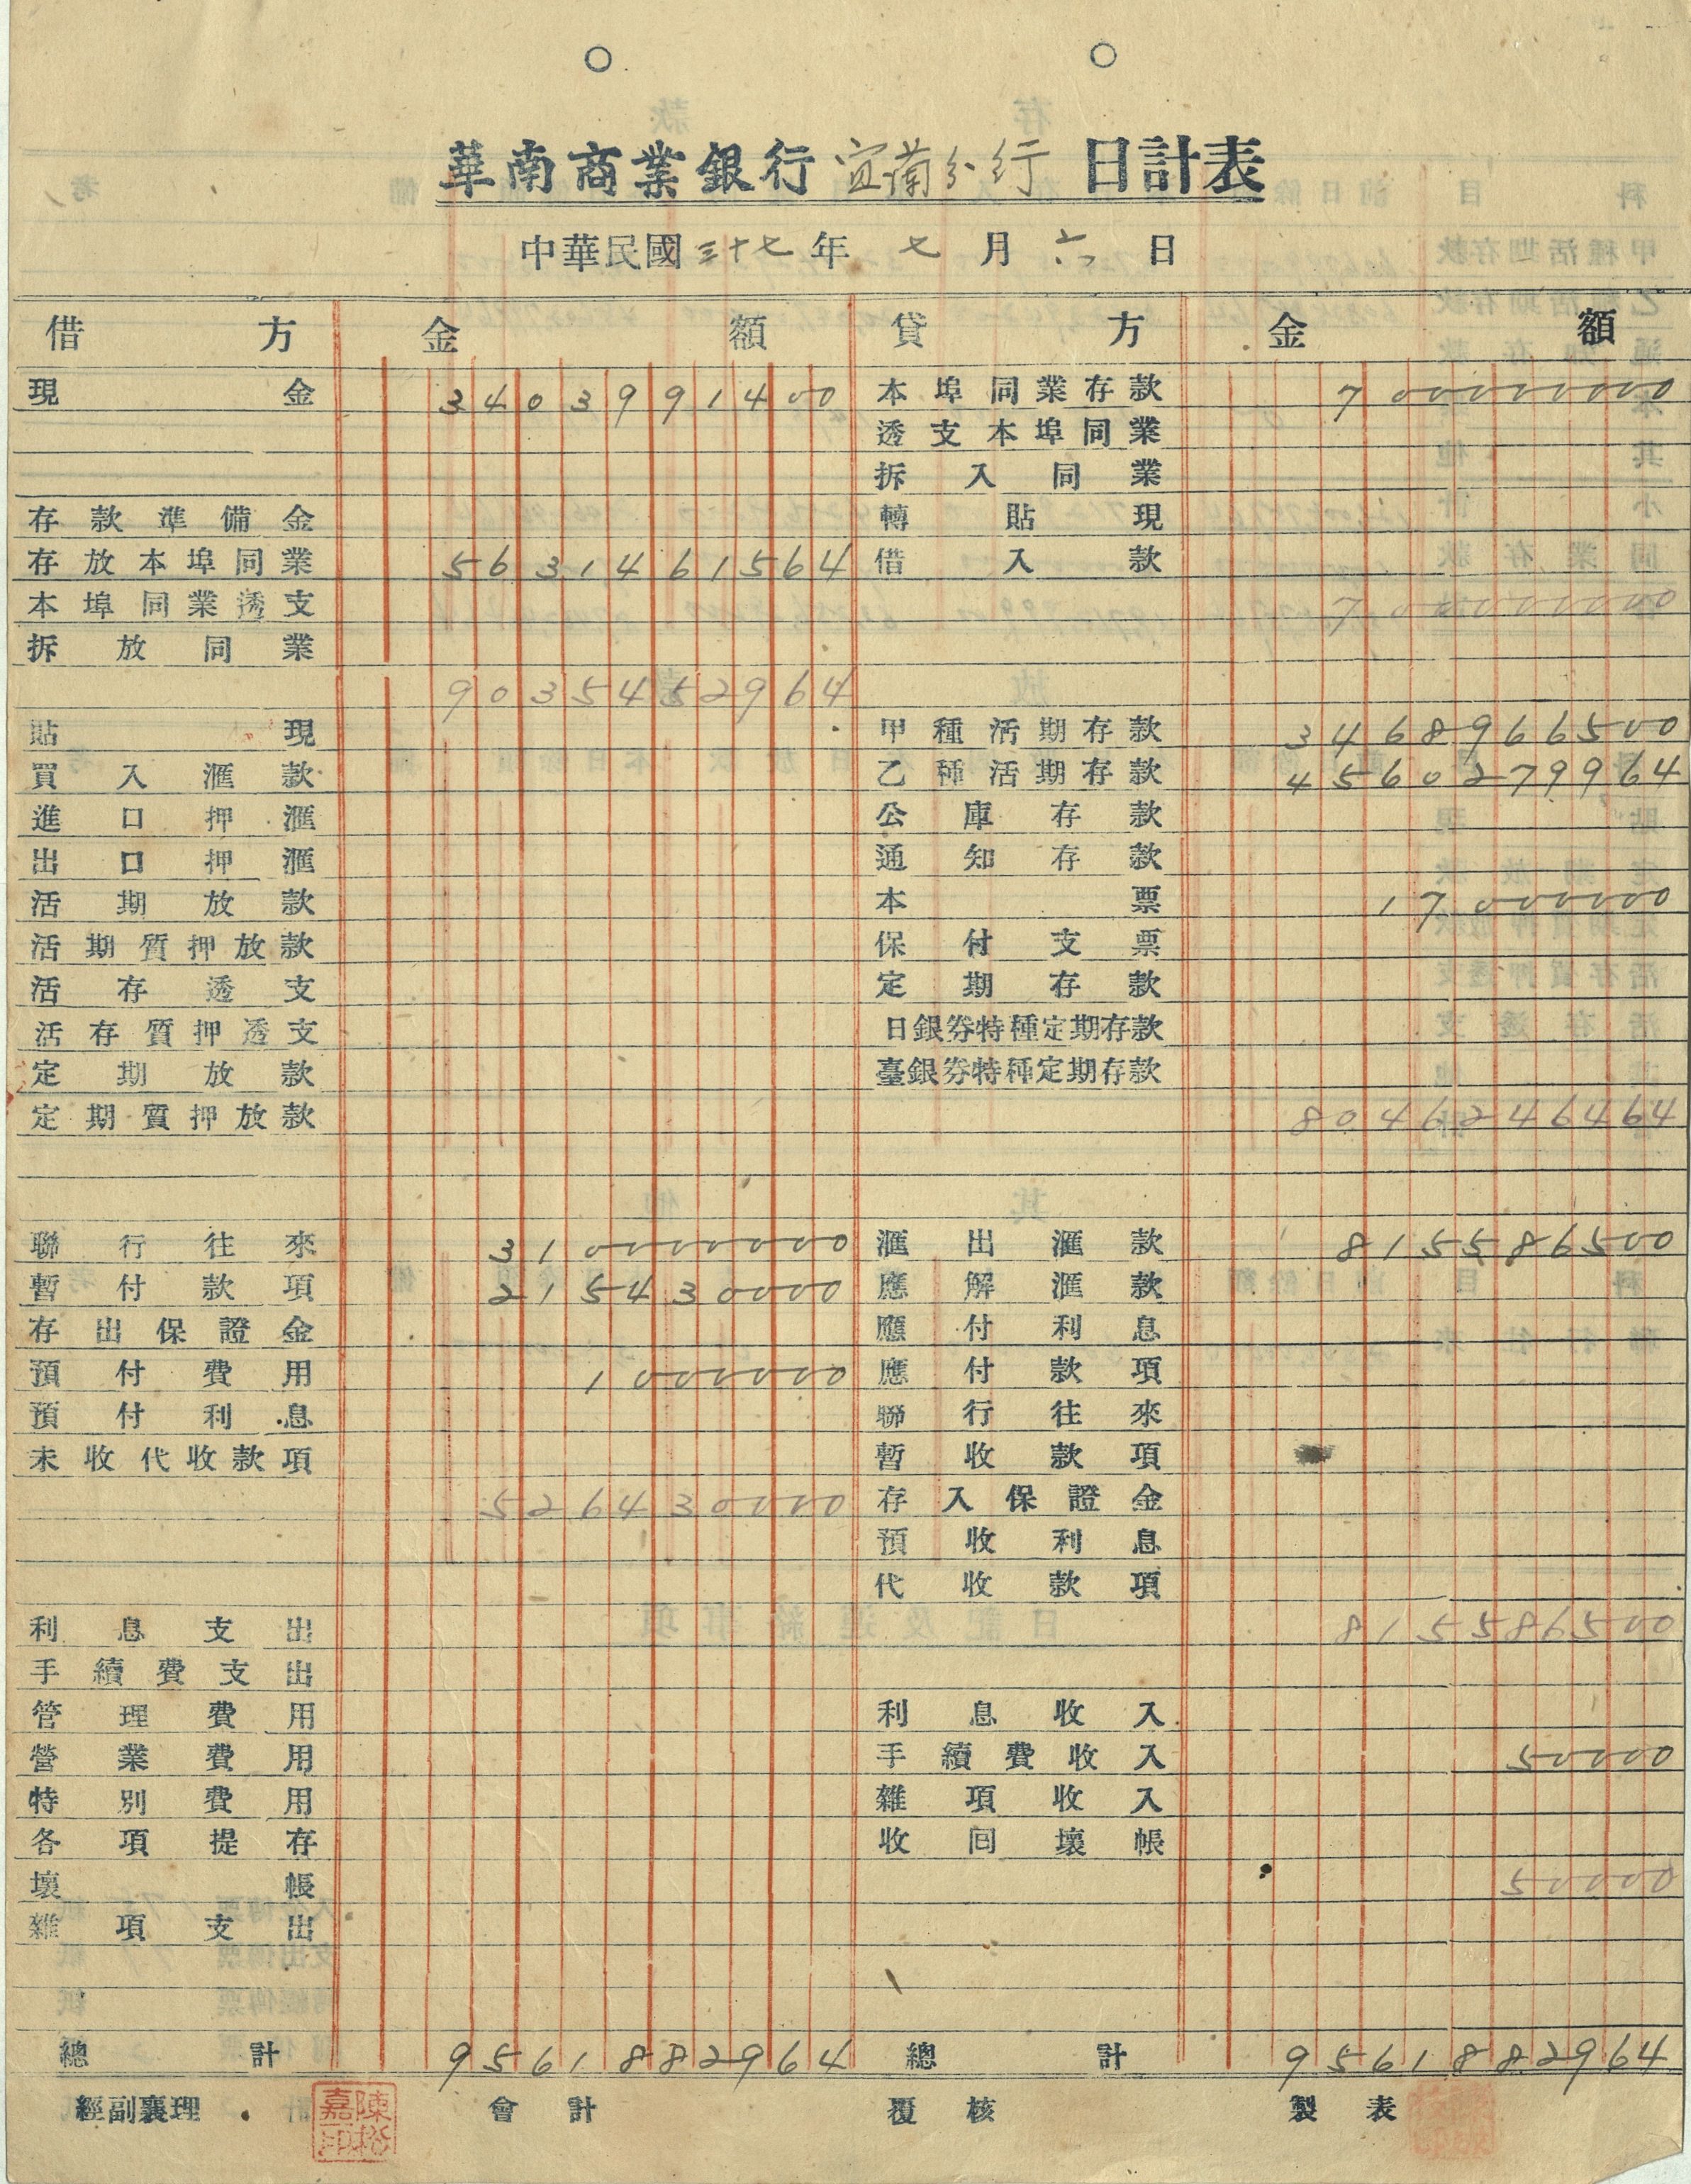 華南商業銀行宜蘭分行日計表
中華民國三十七年七月六日
借方 金額 貸方 金額
現金 3403991400 本埠同業存款 7000000000
透支本埠同業
拆入同業
存款準備金 轉貼現
存放本埠同業 5631461564 借入款
本埠同業透支 7000000000
拆放同業
9035452964
貼現 甲種活期存款 3468966500
買入滙款 乙種活期存款 4560279964
進口押滙 公庫存款
出口押滙 通知存款
活期放款 本票 170000000
活期質押放款 保付支票
活存透支 定期存款
活存質押透支 日銀券特種定期存款
定期放款 臺銀券特種定期存款
定期質押放款 8046246464
聯行往來 3100000000 滙出滙款 815586500
暫付款項 2154300000 應解滙款
存出保證金 應付利息
預付費用 10000000 應付款項
預付利息 聯行往來
未收代收款項 暫收款項
5264300000 存入保證金
預收利息
代收款項
利息支出 815586500
手續費支出
管理費用 利息收入
營業費用 手續費收入 50000
特別費用 雜項收入
各項提存 收回壞帳
壞帳 50000
雜項支出
總計 9561882964 總計 9561882964
經副襄理 會計 覆核 製表